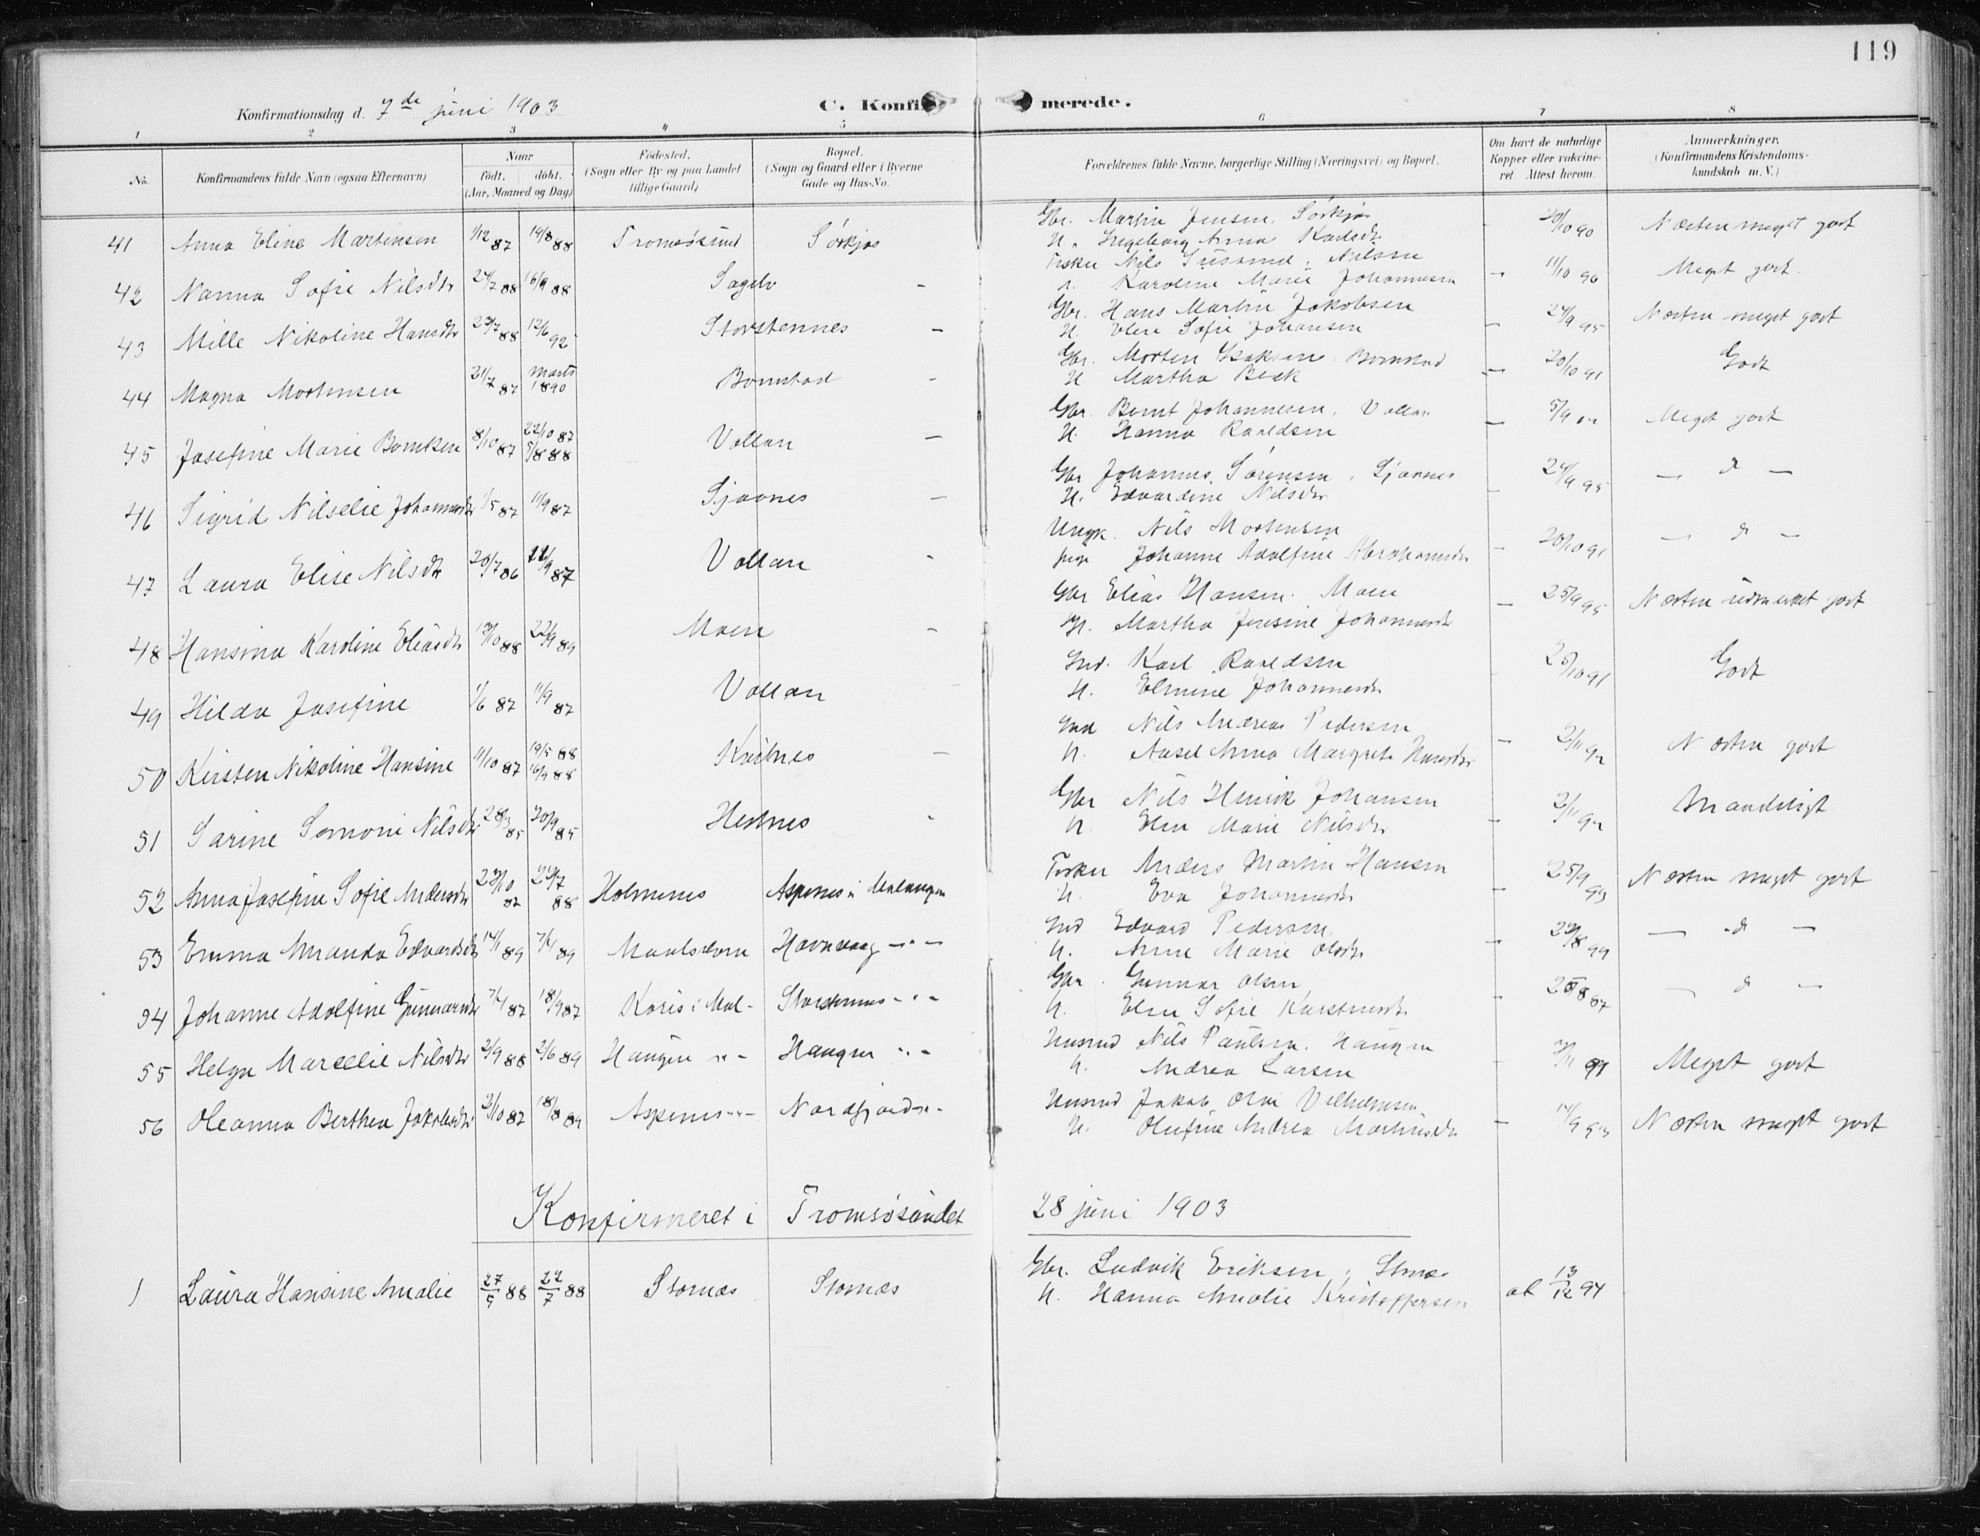 119
Konfirmationsdag d. 7de juni 1903 C. Konfirmerede.
1 2 3 4 5 6 7 8
No. Konfirmandens fulde Navn (ogsaa Efternavn) Naar født. døbt. (Aar, Maaned og Dag) Fødested. (Sogn eller By og paa Landet tillige Gaard) Bopæl. (Sogn og Gaard eller i Byerne Gade og Hus-No. Forældrenes fulde Navne, borgerlige Stilling (Næringsvei) og Bopæl. Om havt de naturlige Kopper eller vakcineret Attest herom. Anmærkninger. (Konfirmandens Kristendomskundskab m. V.)
41 Anna Eline Martinsen 1/12 87 19/8 88 Tromsøsund Sørkjos Gbr. Martin Jensen, Sørkjos 20/10 90 Næsten meget godt
H. Ingeborg Anna Karlsdtr
42 Nanna Sofie Nilsdtr 24/7 88 16/9 88 Sagelv - Fisker Nils Nilsen - 11/10 90 Meget godt.
Karoline Marie Johannesen
43 Mille Nikoline Hansdtr 29/7 88 12/6 92 Storstennes - Gbr. Hans Martin Jakobsen - 24/9 95 Næsten meget godt
H Sofie Johansen
44 Magna Mortensen 21/7 87 marts 1890 Bomstad - Gbr. Morten Isaksen Bomstad - 20/10 91 Godt
H Martha Beck
45 Josefine Marie Berntsen 8/10 87 22/10 87 5/8 88 Vollan - Gbr. Bernt Johannesen, Vollan - 5/9 Meget godt
H. Hanna Karldsen
46 Sigrid Nilselie Johannesdtr 1/5 87 11/9 87 Sjaanes - Gbr Johannes Sørensen, Sjaanes - 24/9 95 - d -
H. Edvardine Nilsdtr
47 Laura Elise Nilsdtr 20/7 86 11/9 87 Vollan - Ungk. Nils Mortensen - 20/10 91 - d -
pige Johanne Adolfine Abrahamsdtr
48 Hansina Karoline Eliasdtr 13/10 88 22/9 89 Moen - Gbr Elias Hansen. Moen - 25/9 95 Næsten udmerket godt
H. Martha Jensine Johannesdtr
49 Hilda Josefine 1/6 87 11/9 87 Vollan - Ind. Karl Karldsen - 25/10 91 Godt
H. Elmine Johannesdtr
50 Kirsten Nikoline Hansine 11/10 87 19/5 88 16/9 88 - Ind Nils Andreas Pedersen - 2/11 92 Næsten godt
H. Anna Margrete Hansdtr
51 Sarine Nilsdtr 28/3 85 20/9 85 Hestnes - Gbr Nils Henrik Johansen - 2/11 92 Maadeligt
H. Elen Marie Nilsdtr
52 Anna Josefine Sofie Andersdtr 23/10 87 29/7 88 Holmenes Aspenes i Malangen Fisker Anders Martin Hansen - 25/9 99 Næsten meget godt
H. Eva Johannesdtr
53 Emma Amanda Edvardsdtr 14/1 89 7/4 89 Maalselven Havnvaag -"- Ind Edvard Pedersen - 29/8 99 - d -
H. Anne Marie Olsdtr
54 Johanne Adolfine Gunnarsdtr 7/4 87 18/9 87 i Mal- Storstennes -"- Gbr. Gunnar Olsen - 28/8 87 - d -
H. Elen Sofie Karstensdtr
55 Helga Marselie Nilsdtr 2/9 88 2/6 89 Haugen "- Haugen "- Husmd Nils Paulsen. Haugen Meget godt
H. Andrea Larsen
56 Oleanna Berthea Jakobsdtr 2/10 87 18/8 89 Aspenes -"- Nordfjord -"- Husmd Jakob Olai Vilhelmsen - 14/9 Næsten meget godt
H. Olufine Andrea Martinsdtr
Konfirmeret i Tromsøsundet 28 juni 1903
1 Laura Hansine Amalie 27/5 88 22/7 88 Stornæs Stornæs Gbr. Ludvik Eriksen, Stornæs at 13/12 94
H. Hanna Amalie Kristoffersen